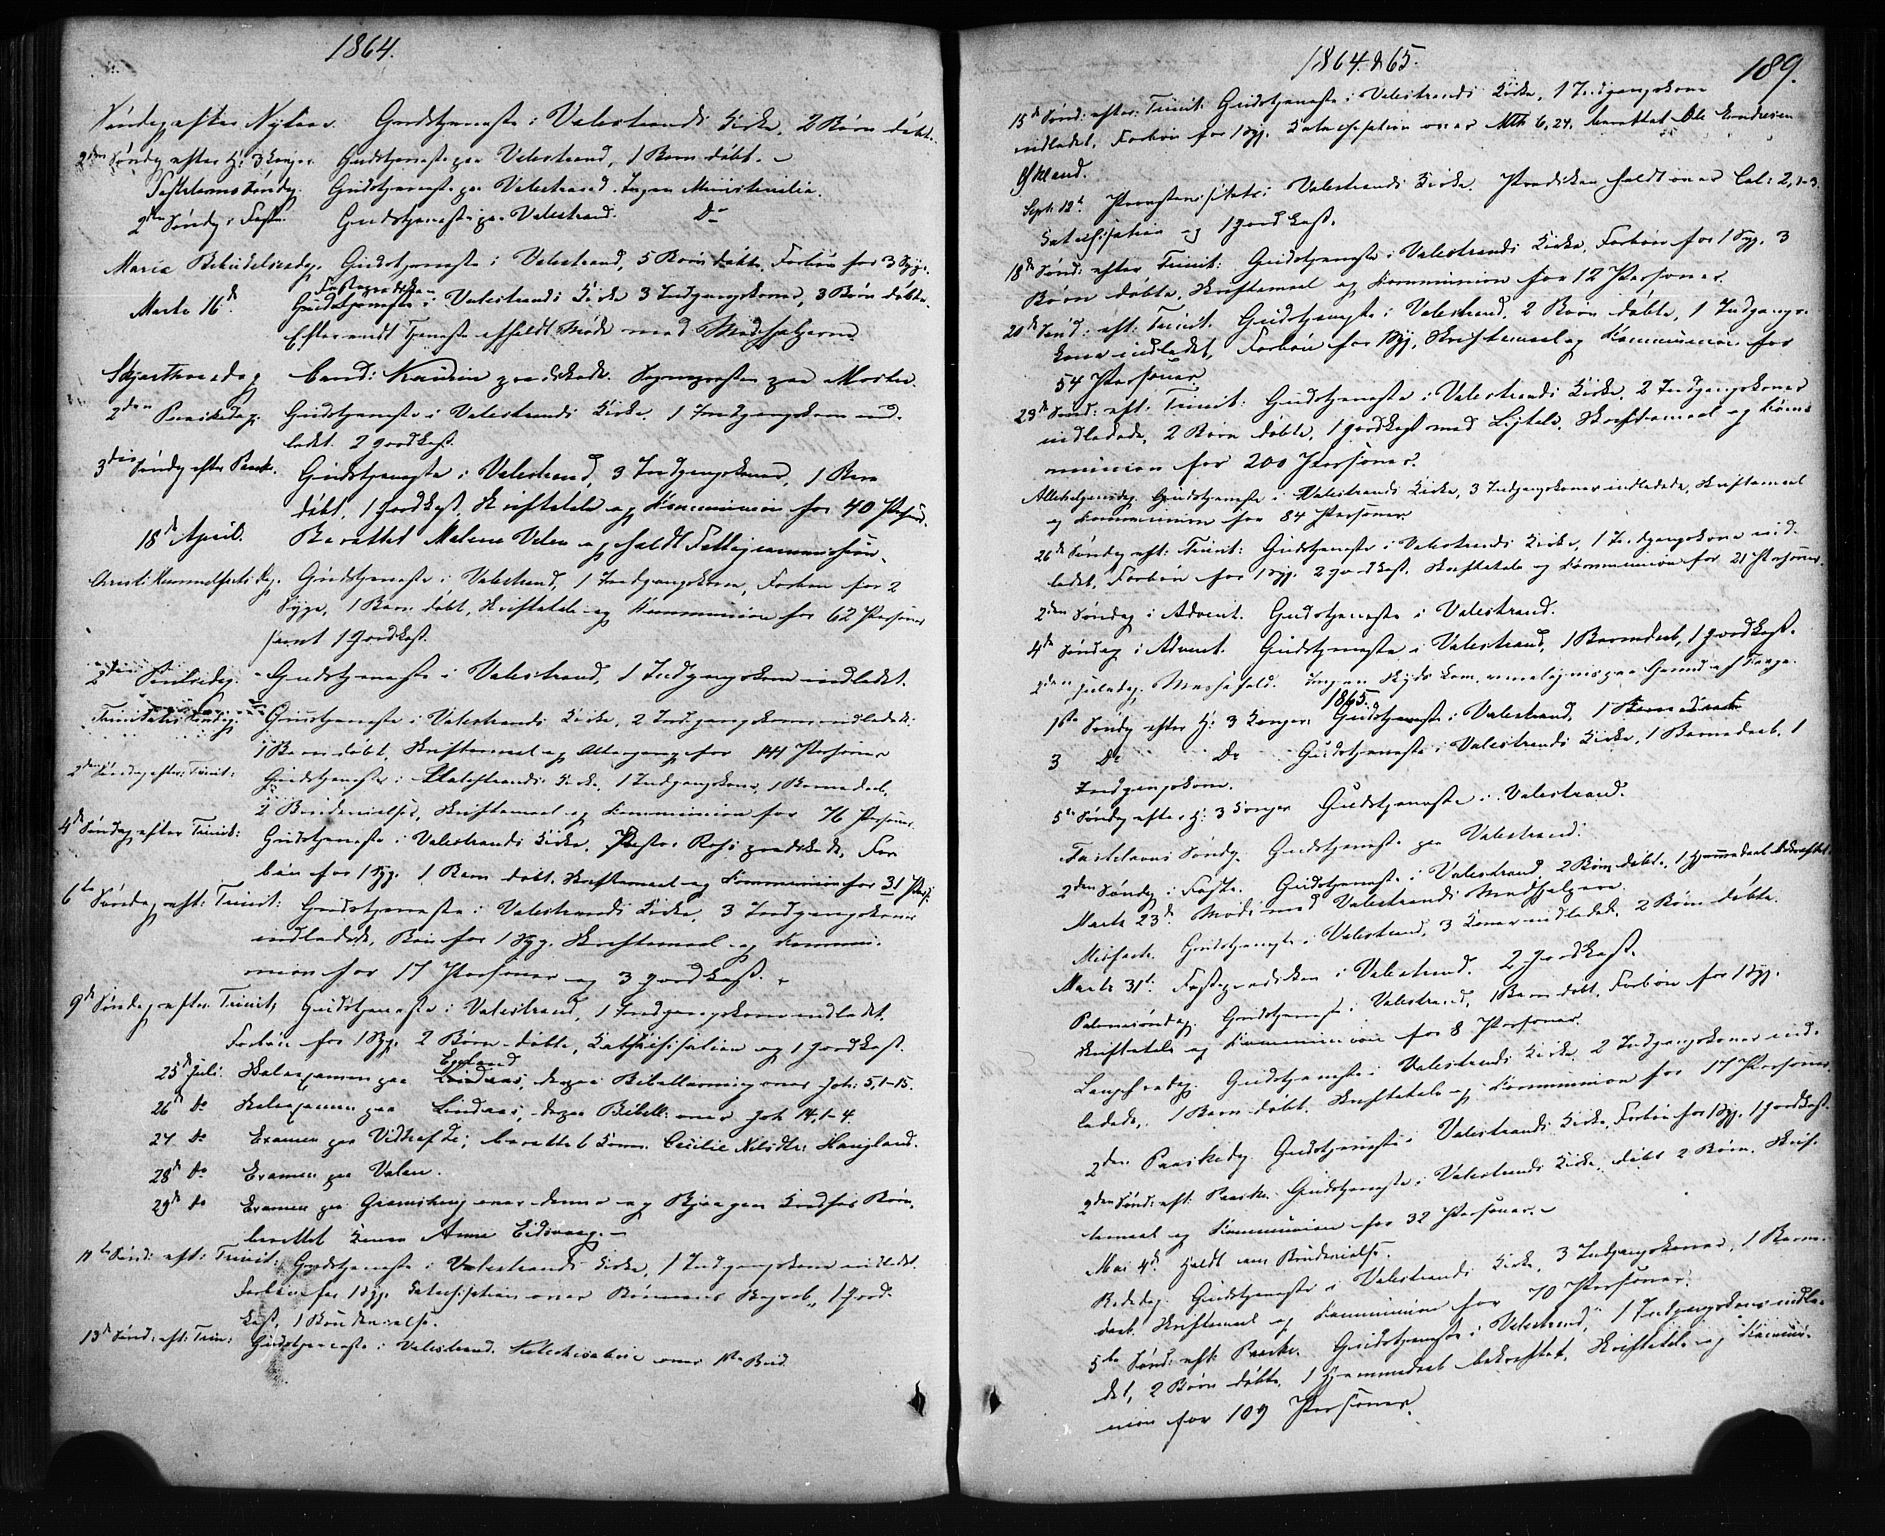 1864.
Søndag efter Nytaar. Gudstjeneste i Valestrands Kirke, 2 Børn døbt.
2den Søndag efter H: 3 Konger. Gudstjeneste paa Valestrand, 1 Barn døbt. –
Fastelavns Søndag. Gudstjeneste paa Valestrand. Ingen Ministerialia.
2den Søndag i Faste. Gudstjeneste paa Valestrand. Do
Mariæ Bebudelsesdag. Gudstjeneste i Valestrand, 5 Børn døbte, Forbøn for 3 Syge.
Fasteprædiken
Marts 16de Gudstjeneste i Valestrands Kirke 3 Indgangskoner, 3 Børn døbte.
Efter endt Tjeneste afholdt Møde med Medhjælperne
Skjærthorsdag Cand: Kaurin prædikede. Sognepresten paa Moster.
2den Paaskedag. Gudstjeneste i Valestrands Kirke, 1 Indgangskone ind-
ledet. 2 Jordkast.
3die Søndag efter Paaske. Gudstjeneste i Valestrand, 3 Indgangskoner, 1 Barn
døbt, 1 Jordkast, Skriftetale og Kommunion for 40 Person.
18de April. Berettet Malene Valen og holdt Fattigcommission.
Christi Himmelfarts Dag. Gudstjeneste i Valestrand, 1 Indgangskone, Forbøn for 2
Syge, 1 Barn døbt, Skriftetale og Kommunion for 62 Personer
samt 1 Jordkast.
2den Pintsedag. Gudstjeneste i Valestrand, 1 Indgangskone indledet.
Trinitatis Søndag. Gudstjeneste i Valestrands Kirke, 2 Indgangskoner indledede.
1 Barn døbt, Skriftemaal og Altergang for 144 Personer
2den Søndag efter Trinit: Gudstjeneste i Valestrands Kirke, 1 Indgangskone, 1 Barnedaab,
2 Brudevielser, Skriftemaal og Kommunion for 76 Personer
4de Søndag efter Trinit: Gudstjeneste i Valestrands Kirke, Pastor prædikede, For-
bøn for 1 Syg. 1 Barn døbt. Skriftemaal og Kommunion for 31 Pers:
6te Søndag eft: Trinit: Gudstjeneste i Valestrands Kirke, 3 Indgangskoner
indledede, Bøn for 1 Syg. Skriftemaal og Kommu-
nion for 17 Personer og 3 Jordkast.
9de Søndag efter Trinit, Gudstjeneste i Valestrand, 1 Indgangskone indledet.
Forbøn for 1 Syg. 2 Børn døbte, Kathekisation og 1 Jordkast.
25de Juli. Skoleexamen paa, derpaa Bibellæsning over Joh: 5,1-15.
26de Do Skoleexamen paa Lindaas, derpaa Bibell: over Joh 14,1-4.
27 Do Examen paa, berettet Cecilie Haugland.
28de Do Examen paa Valen.
29de Do Examen paa over denne og Kredses Børn,
berettet Konen Anna Eidsvaag. –
11te Sønd: eft: Trinit: Gudstjeneste i Valestrands Kirke, 1 Indgangskone indledet.
Forbøn for 1 Syg. Katechisation over, 1 Jord-
kast, 1 Brudevielse.
13de Sønd: eft: Trin: Gudstjeneste i Valestrand. Katechisation over 1ste Bud.
1864. & 65.
189.
15de Sønd: efter Trinit: Gudstjeneste i Valestrands Kirke, 1 Indgangskone
indledet, Forbøn for 1 Syg. Katechisation over Mth 6,24, berettet Ole Endresen
Økland.
Septr 12te Provstevisitats i Valestrands Kirke. Prædiken holdt over Col: 2,1-3.
Katechisation og 1 Jordkast.
18de Sønd: efter Trinit: Gudstjeneste i Valestrands Kirke, Forbøn for 1 Syg. 3
Børn døbte, Skriftemaal og Kommunion for 12 Personer
20de Sønd: eft: Trinit. Gudstjeneste i Valestrand, 2 Børn døbte, 1 Indgangs-
kone indledet, Forbøn for 1 Syg, Skriftemaal og Kommunion for
54 Personer
23de Sønd: eft: Trinit: Gudstjeneste i Valestrands Kirke, 2 Indgangskoner
indledede, 2 Børn døbte, 1 Jordkast med Ligtale, Skriftemaal og Kom-
munion for 200 Personer.
Allehelgensdag. Gudstjeneste i Valestrands Kirke, 3 Indgangskoner indledede, Skriftemaal
og Kommunion for 84 Personer.
26de Søndag eft: Trinit: Gudstjeneste i Valestrands Kirke, 1 Indgangskone ind-
ledet, Forbøn for 1 Syg. 2 Jordkast. Skriftetale og Kommunion for 21 Personer.
2den Søndag i Advent. Gudstjeneste i Valestrand.
4de Søndag i Advent. Gudstjeneste i Valestrand, 1 Barnedaab, 1 Jordkast.
2den Juledag. Messefald. Ingen Skyds kom,
1865.
1ste Søndag efter H: 3 Konger. Gudstjeneste i Valestrand, 1 Barnedaab
3 Do Do Gudstjeneste i Valestrands Kirke, 1 Barnedaab, 1
Indgangskone.
5te Søndag efter H: 3 Konger Gudstjeneste i Valestrand.
Fastelavns Søndag. Gudstjeneste paa Valestrand.
2den Søndag i Faste. Gudstjeneste i Valestrand, 2 Børn døbt, 1 Hjemmedaab bekræftet
Marts 23de. Møde med Valestrands Medhjælpere.
Midfaste. Gudstjeneste i Valestrand, 3 Koner indledede, 2 Børn døbte.
Marts 31te. Fasteprædiken i Valestrand. 2 Jordkast.
Palmesøndag. Gudstjeneste i Valestrand, 1 Barn døbt. Forbøn for 1 Syg.
Skriftetale og Kommunion for 8 Personer.
Langfredag. Gudstjeneste i Valestrands Kirke. 2 Indgangskoner ind-
ledede, 1 Barn døbt. Skriftetale og Kommunion for 17 Personer
2den Paaskedag Gudstjeneste i Valestrands Kirke, Forbøn for 1 Syg. 1 Jordkast.
2den Sønd: eft: Paaske. Gudstjeneste i Valestrands Kirke, døbt 2 Børn, Skrif-
temaal og Kommunion for 32 Personer. –
Mai 4de. Holdt een Brudevielse.
Bededag. Gudstjeneste i Valestrands Kirke, 3 Indgangskoner, 1 Barne-
daab. Skriftemaal og Kommunion for 70 Personer.
5te Sønd: eft: Paaske. Gudstjeneste i Valestrand, 1 Indgangskone indle-
det, 2 Børn døbte, 1 Hjemmedaab bekræftet, Skriftetale og Kommu-
nion for 109 Personer.